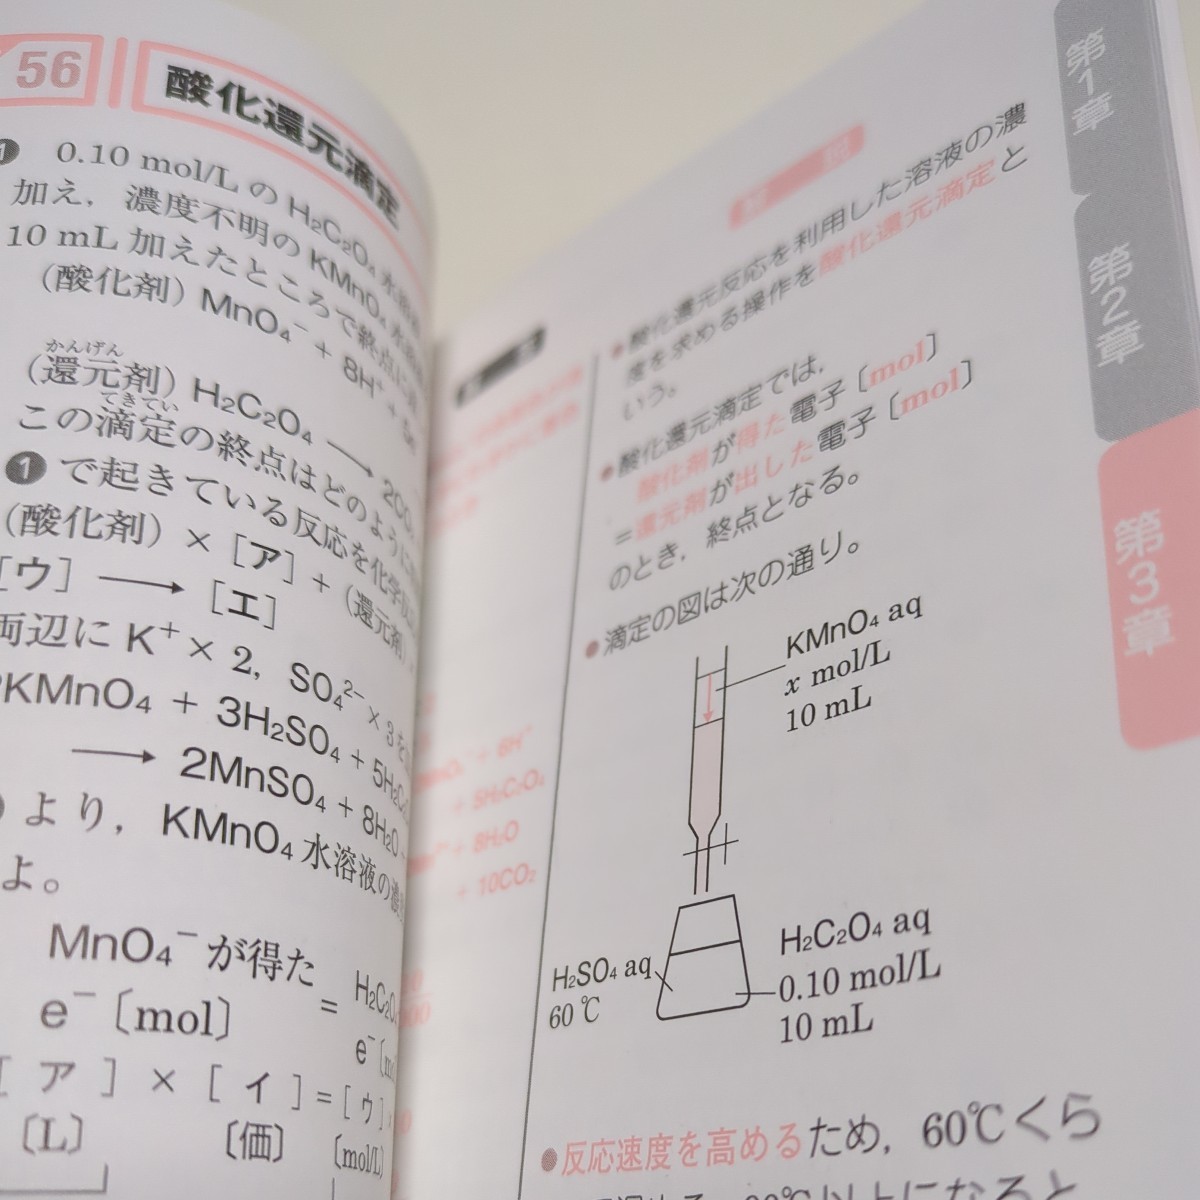 56
酸化還元滴定
1 0.10 mol/L の H₂C₂O₄ 水
加え，濃度不明の KMnO₄ 水
10 mL 加えたところで終点に
(酸化剤) MnO₄⁻ + 8H⁺ +
かんげん
(還元剤) H₂C₂O₄ ⟶ 2CO₂
てきてい
この滴定の終点はどのように
1 で起きている反応を化学
(酸化剤) × [ア] + (還元剤)
[ウ] ⟶ [エ]
両辺に K⁺ × 2, SO₄²⁻ × 3 を
KMnO₄ + 3H₂SO₄ + 5H₂C
⟶ 2MnSO₄ + 8H₂O
より，KMnO₄ 水溶液の濃
よ。
MnO₄⁻ が得た = H₂C₂O
e⁻〔mol〕 e⁻
[ ア ] × [ イ ] = [ ウ ]
〔L〕 〔価〕 〔mol/L〕
+ 8H⁺
+ 5H₂C₂O₄
+ 8H₂O
+ 10CO₂
●酸化還元反応を利用した溶液の濃
度を求める操作を酸化還元滴定と
いう。
●酸化還元滴定では，
酸化剤が得た電子〔mol〕
＝還元剤が出した電子〔mol〕
のとき，終点となる。
●滴定の図は次の通り。
KMnO₄ aq
x mol/L
10 mL
H₂SO₄ aq
60 ℃
H₂C₂O₄ aq
0.10 mol/L
10 mL
●反応速度を高めるため，60℃くら
第1章
第2章
第3章